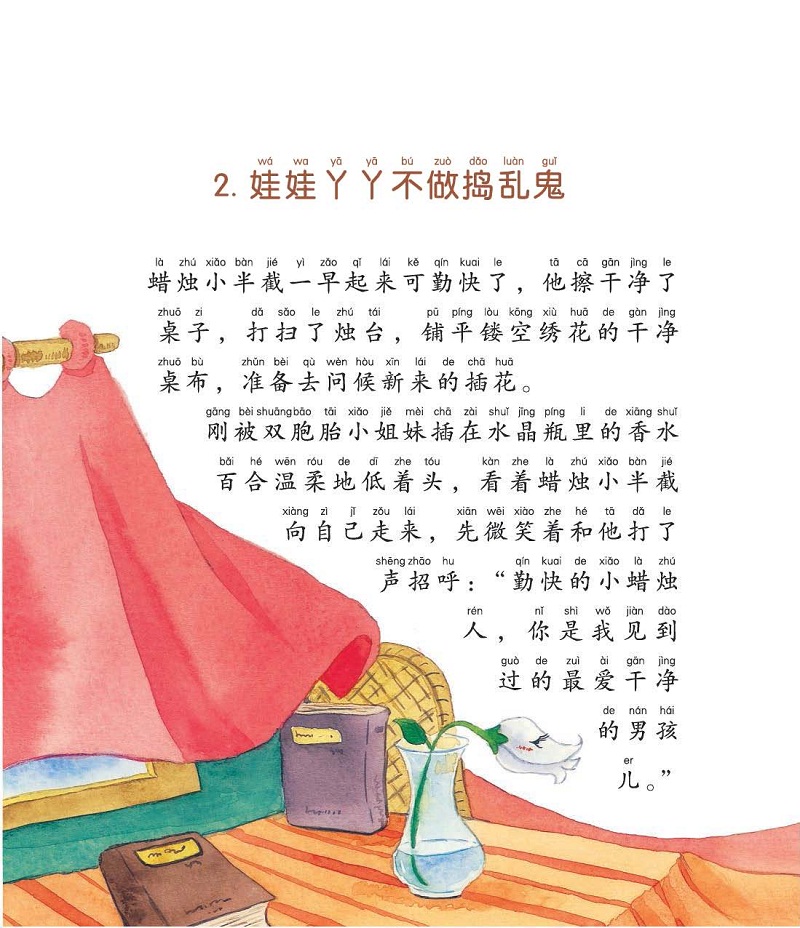 wá wa yā yā bú zuò dǎo luàn guǐ
2. 娃娃丫丫不做捣乱鬼
là zhú xiǎo bàn jié yì zǎo qǐ lái kě qín kuai le tā cā gān jìng le
蜡烛小半截一早起来可勤快了，他擦干净了
zhuō zi dǎ sǎo le zhú tái pū píng lòu kōng xiù huā de gàn jìng
桌子，打扫了烛台，铺平镂空绣花的干净
zhuō bù zhǔn bèi qù wèn hòu xīn lái de chā huā
桌布，准备去问候新来的插花。
gāng bèi shuāng bāo tāi xiǎo jiě mèi chā zài shuǐ jīng píng li de xiāng shuǐ
刚被双胞胎小姐妹插在水晶瓶里的香水
bǎi hé wēn róu de dī zhe tóu kàn zhe là zhú xiǎo bàn jié
百合温柔地低着头，看着蜡烛小半截
xiàng zì jǐ zǒu lái xiān wēi xiào zhe hé tā dǎ le
向自己走来，先微笑着和他打了
shēng zhāo hu qín kuai de xiǎo là zhú
声招呼：“勤快的小蜡烛
rén nǐ shì wǒ jiàn dào
人，你是我见到
guò de zuì ài gān jìng
过的最爱干净
de nán hái
的男孩
er
儿。”